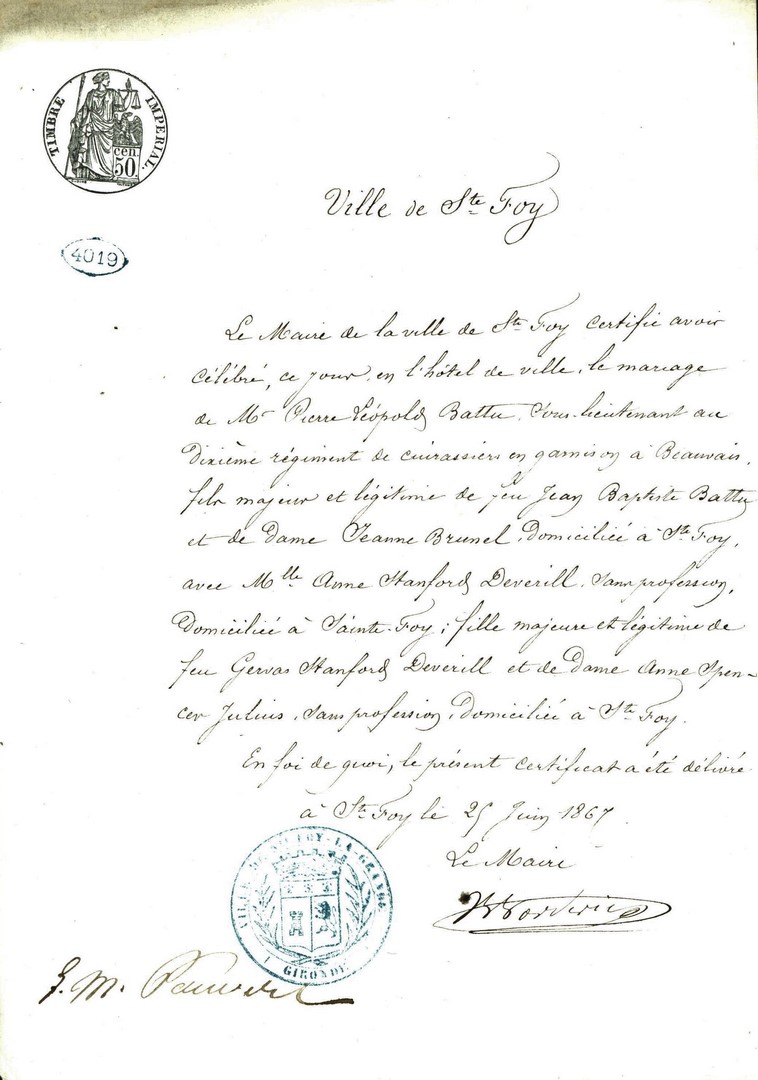 TIMBRE IMPERIAL.
cen.
50.
4019
Ville de Ste Foy
Le Maire de la ville de Ste Foy certifie avoir
célébré, ce jour, en l'hôtel de ville, le mariage
de Mr Pierre Léopold Battu, Sous-lieutenant au
Dixième régiment de cuirassiers en garnison à Beauvais,
fils majeur et légitime de feu Jean Baptiste Battu
et de Dame Jeanne Brunel, domiciliée à Ste Foy,
avec Mlle Anne Stanford Deverill, sans profession,
Domiciliée à Sainte-Foy; fille majeure et légitime de
feu Gervas Stanford Deverill et de Dame Anne Spen-
cer Julius, sans profession, domiciliée à Ste Foy.
En foi de quoi, le présent certificat a été délivré
à Ste Foy le 25 Juin 1867.
Le Maire
VILLE DE Ste FOY-LA-GRANDE
GIRONDE